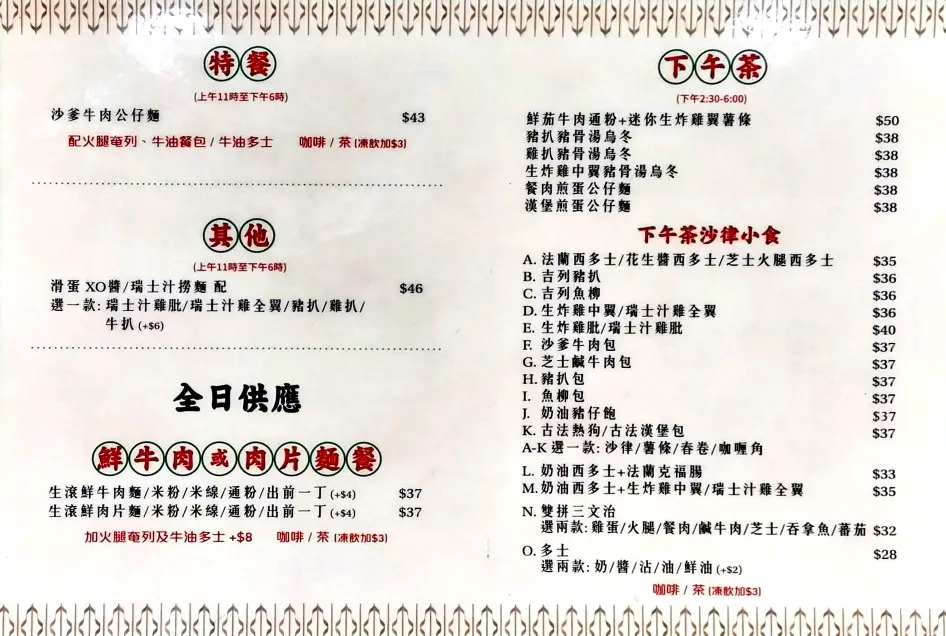 特餐
(上午11時至下午6時)
沙爹牛肉公仔麵 $43
配火腿奄列、牛油餐包 / 牛油多士 咖啡 / 茶 (凍飲加$3)
其他
(上午11時至下午6時)
滑蛋 XO醬/瑞士汁撈麵 配 $46
選一款: 瑞士汁雞肶/瑞士汁雞全翼/豬扒/雞扒/
牛扒 (+$6)
全日供應
鮮牛肉或肉片麵餐
生滾鮮牛肉麵/米粉/米線/通粉/出前一丁 (+$4) $37
生滾鮮肉片麵/米粉/米線/通粉/出前一丁 (+$4) $37
加火腿奄列及牛油多士 +$8 咖啡 / 茶 (凍飲加$3)
下午茶
(下午2:30-6:00)
鮮茄牛肉通粉+迷你生炸雞翼薯條 $50
豬扒豬骨湯烏冬 $38
雞扒豬骨湯烏冬 $38
生炸雞中翼豬骨湯烏冬 $38
餐肉煎蛋公仔麵 $38
漢堡煎蛋公仔麵 $38
下午茶沙律小食
A. 法蘭西多士/花生醬西多士/芝士火腿西多士 $35
B. 吉列豬扒 $36
C. 吉列魚柳 $36
D. 生炸雞中翼/瑞士汁雞全翼 $36
E. 生炸雞肶/瑞士汁雞肶 $40
F. 沙爹牛肉包 $37
G. 芝士鹹牛肉包 $37
H. 豬扒包 $37
I. 魚柳包 $37
J. 奶油豬仔飽 $37
K. 古法熱狗/古法漢堡包 $37
A-K 選一款: 沙律/薯條/春卷/咖喱角
L. 奶油西多士+法蘭克福腸 $33
M. 奶油西多士+生炸雞中翼/瑞士汁雞全翼 $35
N. 雙拼三文治
選兩款: 雞蛋/火腿/餐肉/鹹牛肉/芝士/吞拿魚/蕃茄 $32
O. 多士 $28
選兩款: 奶/醬/沾/油/鮮油 (+$2)
咖啡 / 茶 (凍飲加$3)